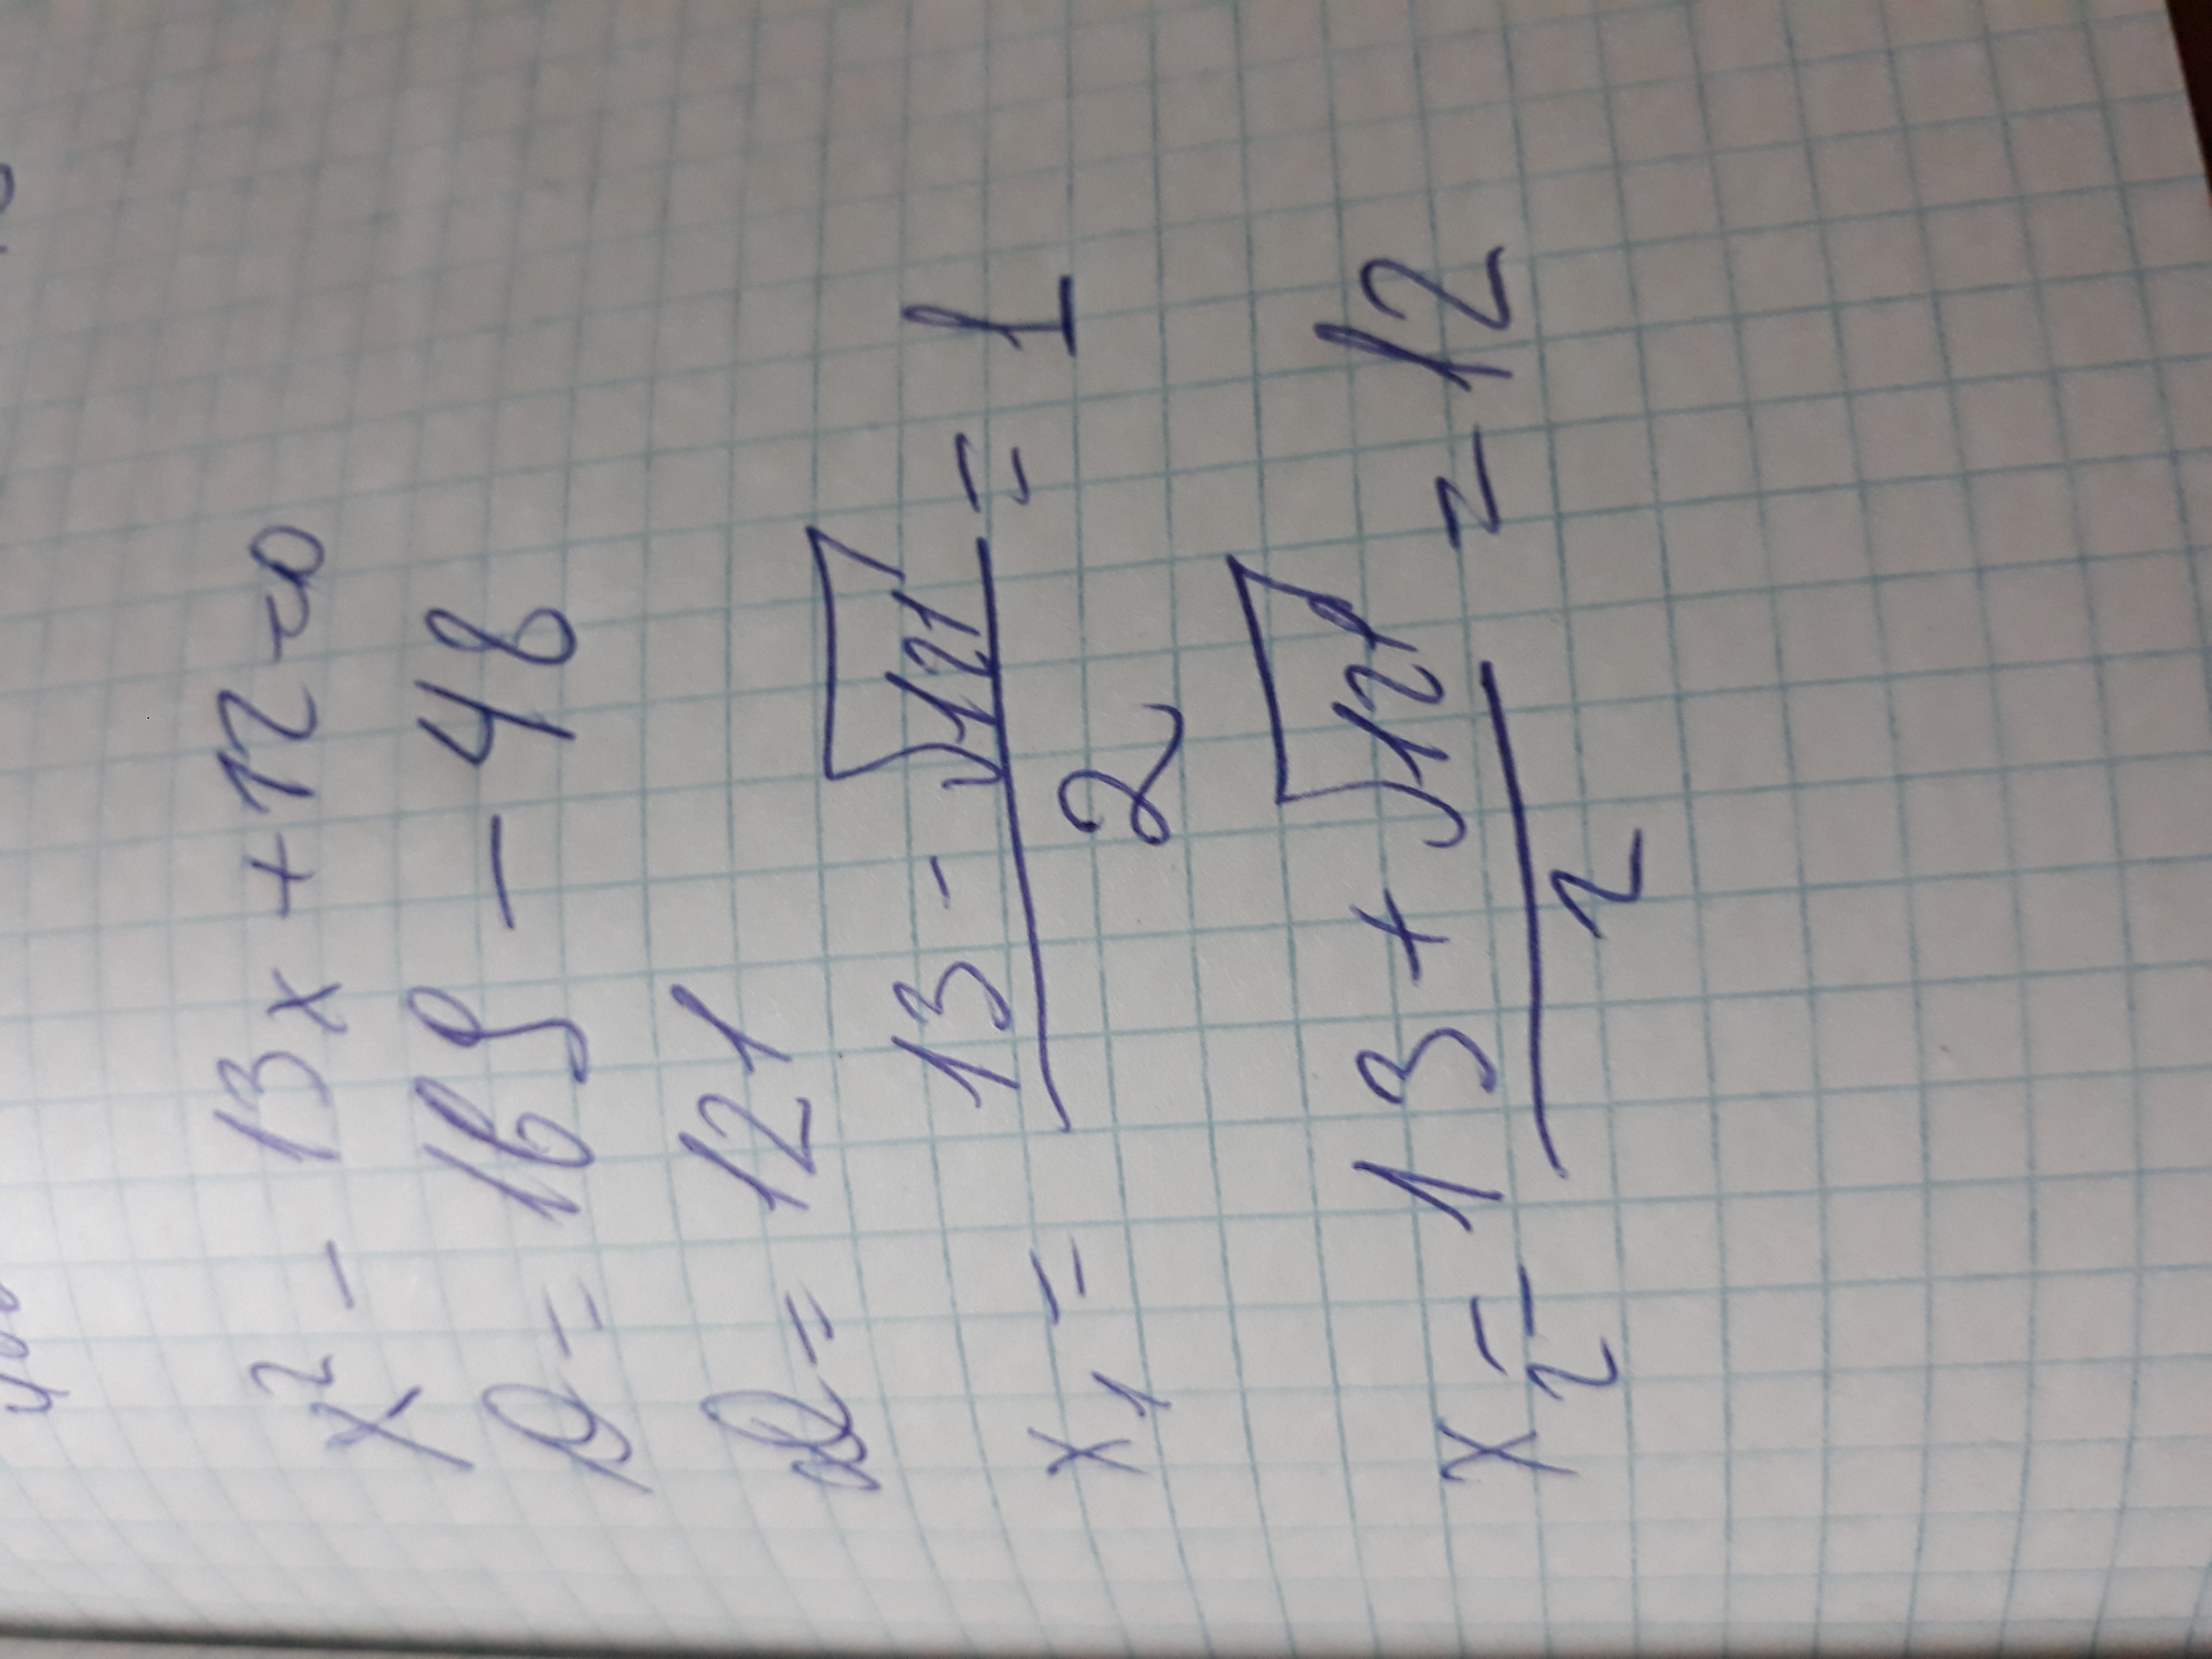 x² - 13x + 12 = 0
D = 169 - 48
D = 121
x₁ = (13 - √121) / 2 = 1
x₂ = (13 + √121) / 2 = 12